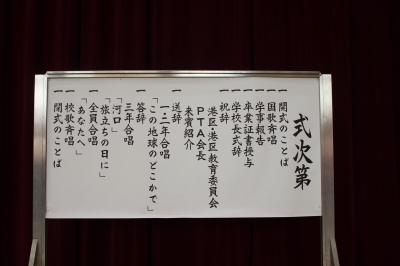 式次第
一 開式のことば
一 国歌斉唱
一 学事報告
一 卒業証書授与
一 学校長式辞
一 祝辞
港区・港区教育委員会
PTA会長
来賓紹介
一 送辞
一・二年合唱
「この地球のどこかで」
一 答辞
三年合唱
「河口」
「旅立ちの日に」
一 全員合唱
「あなたへ」
一 校歌斉唱
一 閉式のことば